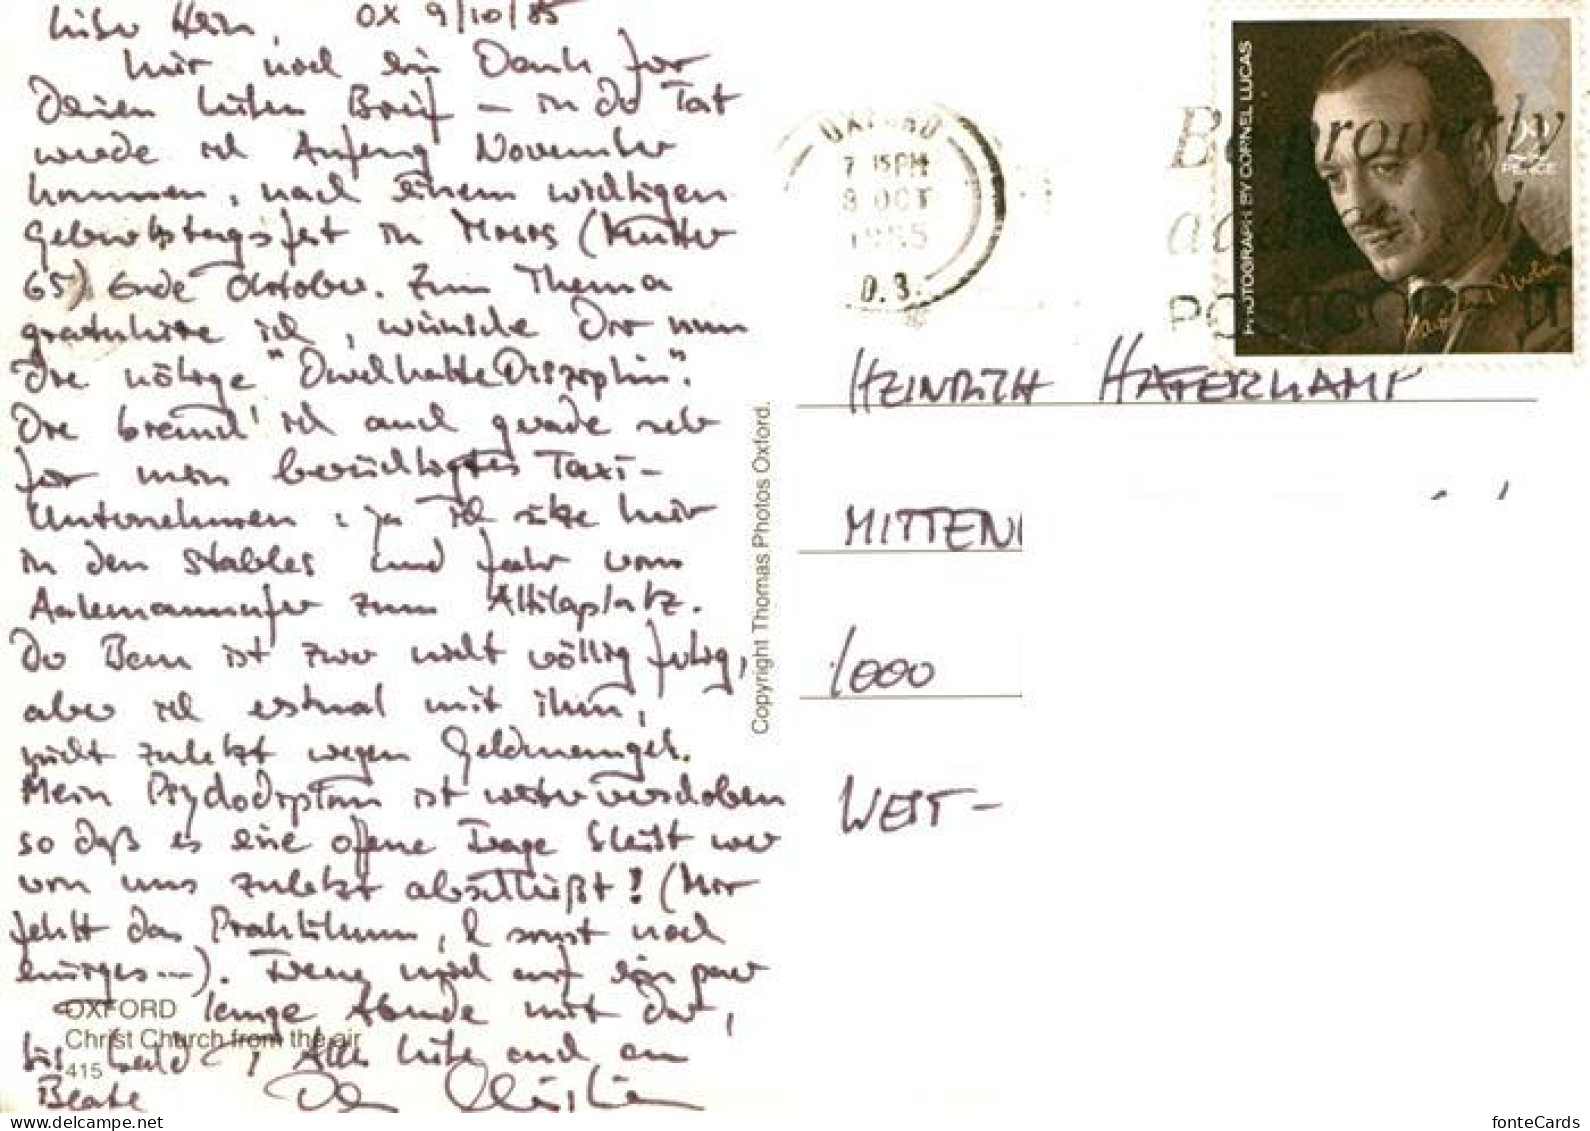 Lieber Hein, OX 9/10/85
hier noch ein Dank für
Deinen lieben Brief – in der Tat
werde ich Anfang November
kommen, nach einem wichtigen
Geburtstagsfest in Moers (Mutter
65) Ende Oktober. Zum Thema
gratuliere ich, wünsche Dir nun
die nötige "Durchhalte Disziplin".
Die brauch' ich auch gerade sehr
für mein berüchtigtes Taxi-
Unternehmen: ja ich sitze hier
in den Stables und fahr vom
zum Attilaplatz.
Der Bem ist zwar nicht völlig fertig,
aber ich erstmal mit ihm,
nicht zuletzt wegen Geldmangel.
Mein Psychodiplom ist weiter verschoben
so daß es eine offene Frage bleibt wer
von uns zuletzt abschließt! (Mir
fehlt das Praktikum, & sonst noch
einiges...). Freue mich auf ein paar
lange Abende mit Dir,
bis bald, Alles Liebe auch an
Beate Dein Christian
OXFORD
Christ Church from the air
415
Copyright Thomas Photos Oxford.
OXFORD
7 15 PM
8 OCT
1985
O.3.
Be properly
POSTCODE IT
PHOTOGRAPH BY CORNEL LUCAS
PENCE
HEINRICH HATERKAMP
MITTEN
1000
WEST-
www.ansichtskarten-center.de
fonteCards